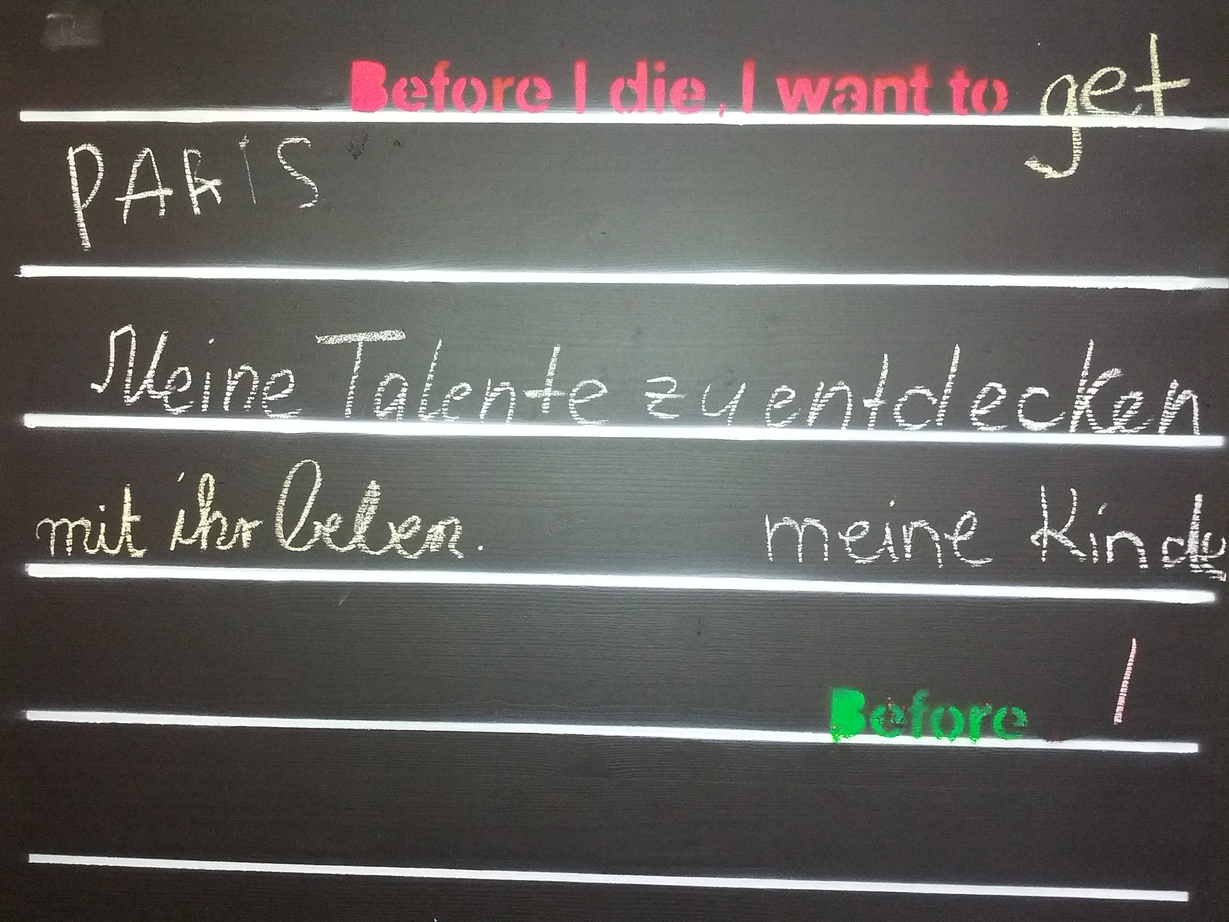 Before I die, I want to get
PARIS
Meine Talente zu entdecken
mit ihr leben. meine Kinde
Before I